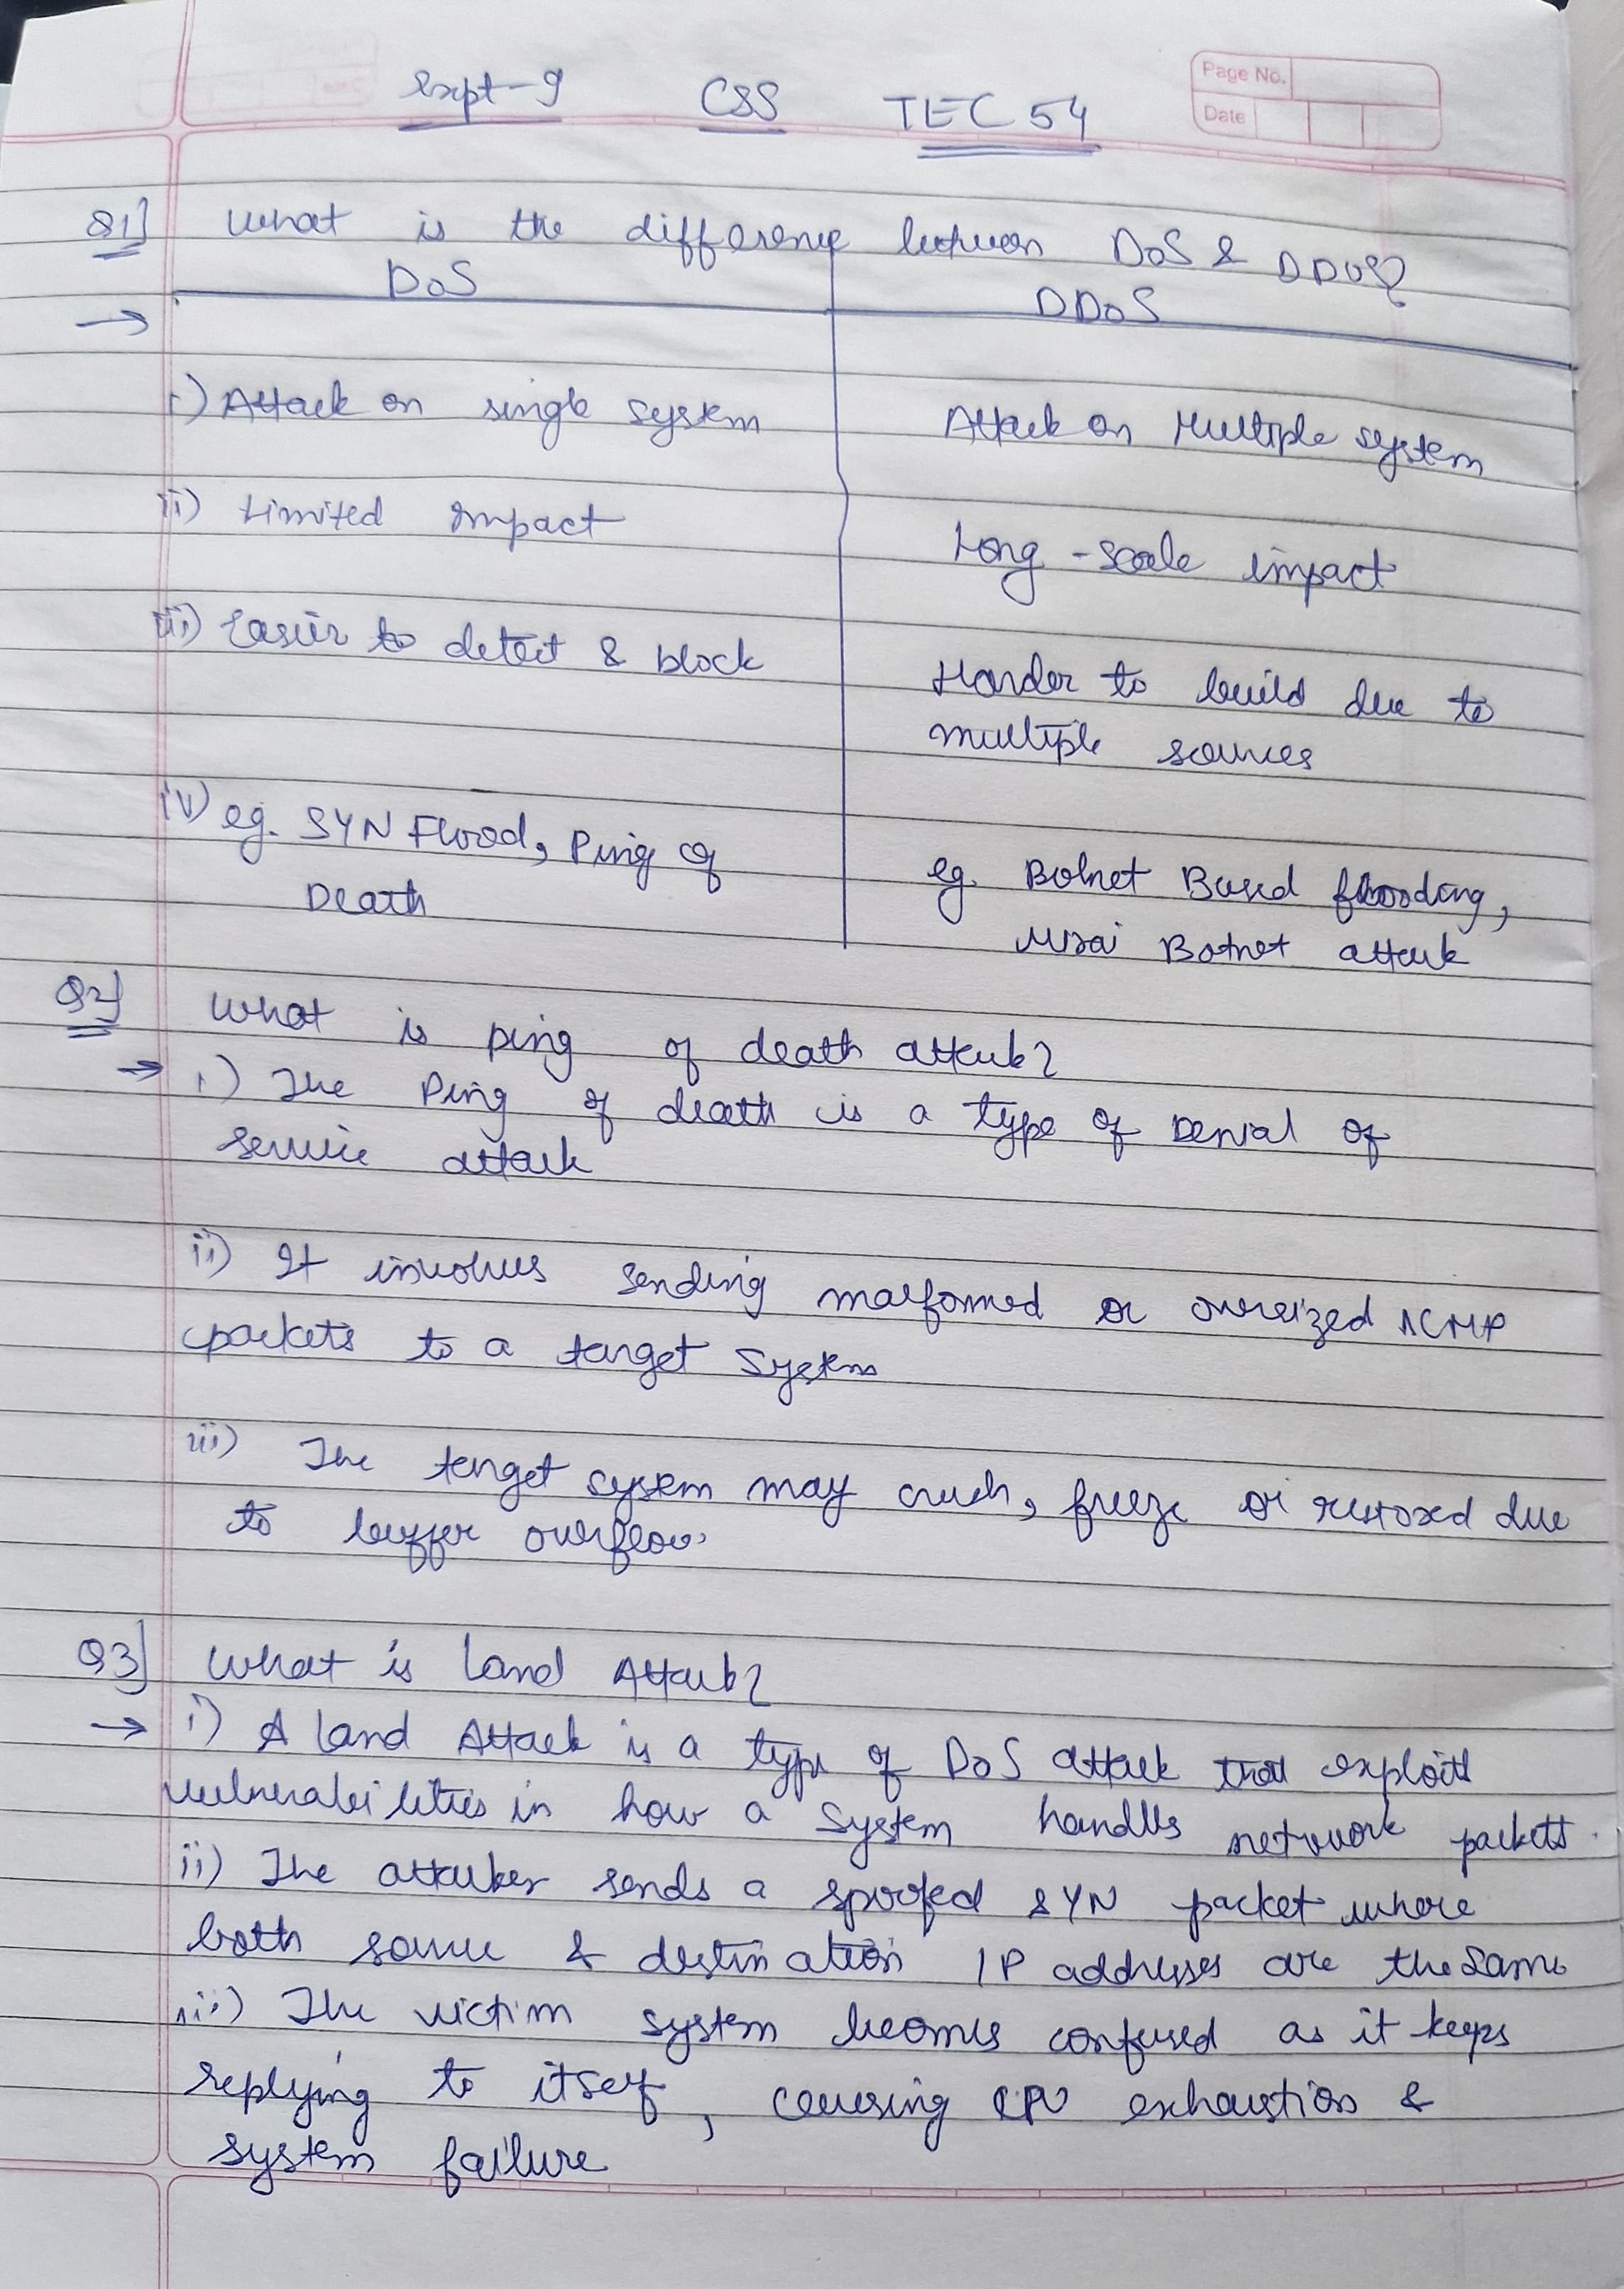 Expt-9 CSS TEC 54
Page No.
Date
Q1] What is the difference between DoS & DDoS?
DoS DDoS
→
i) Attack on single system Attack on Multiple system
ii) Limited Impact Long-scale impact
iii) Easier to detect & block Harder to build due to
multiple sources
iv) eg. SYN Flood, Ping of eg. Botnet Based flooding,
Death Mirai Botnet attack
Q2] What is ping of death attack?
→ i) The Ping of death is a type of Denial of
service attack
ii) It involves sending malformed or oversized ICMP
packets to a target system
iii) The target system may crash, freeze or due
to buffer overflow.
Q3] What is Land Attack?
→ i) A Land Attack is a type of DoS attack that exploits
vulnerabilities in how a system handles network packets.
ii) The attacker sends a spoofed SYN packet where
both source & destination IP addresses are the same
iii) The victim system becomes confused as it keeps
replying to itself, causing CPU exhaustion &
system failure